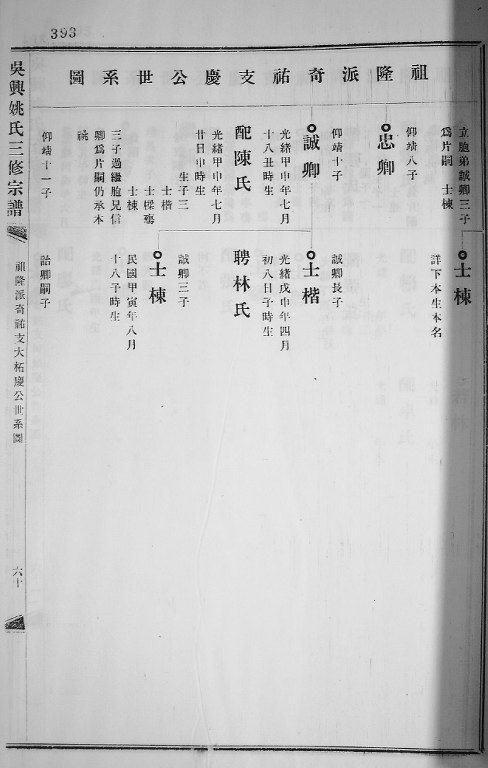 393
祖隆派奇祐支慶公世系圖
立胞弟誠卿三子
爲片嗣　士棟
士棟
詳下本生本名
仰靖八子
忠卿
仰靖十子
誠卿
光緒甲申年七月
十八丑時生
配陳氏
光緒甲申年七月
廿日申時生
生子三
士楷
士樑殤
士棟
三子過繼胞兄信
卿爲片嗣仍承本
祧
誠卿長子
士楷
光緒戊申年四月
初八日子時生
聘林氏
誠卿三子
士棟
民國甲寅年八月
十八子時生
仰靖十一子
詒卿嗣子
吳興姚氏三修宗譜
祖隆派奇祐支大柘慶公世系圖
六十